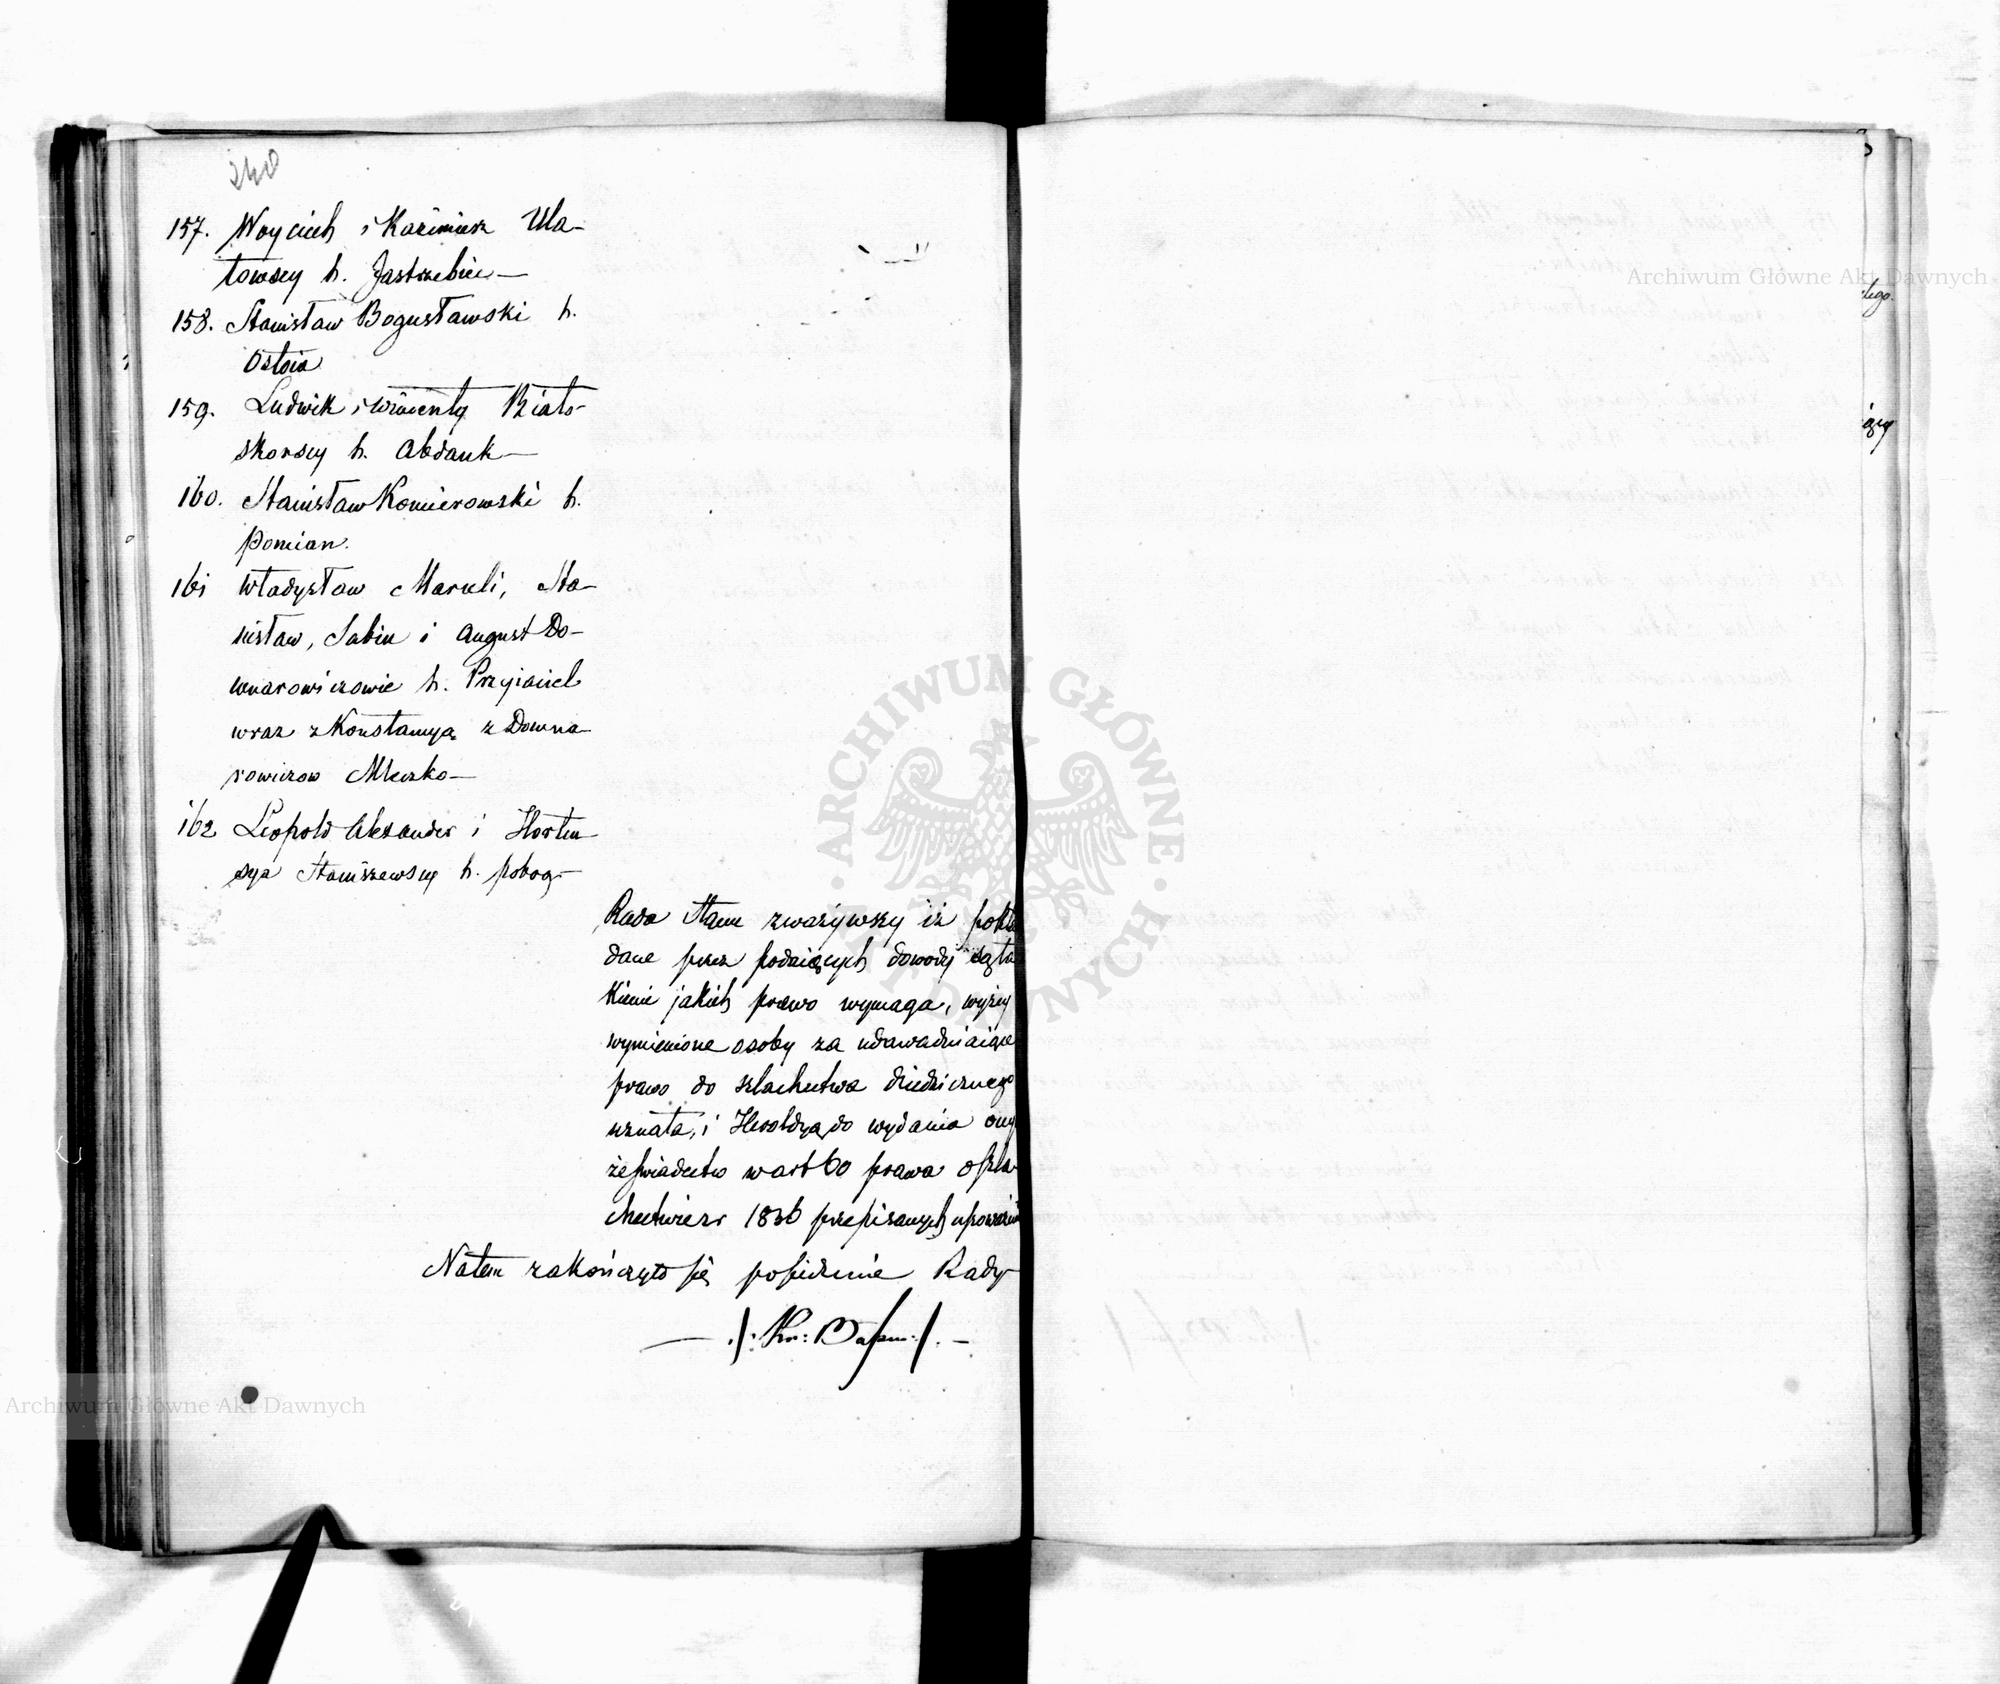 240
157. Woyciech i Kazimierz Ula-
towscy h. Jastrzebiec—
158. Stanisław Bogusławski h.
Ostoia
159. Ludwik i Wincenty Biało-
skorscy h. Abdank—
160. Stanisław Komierowski h.
Pomian.
161 Władysław Marceli, Sta-
nisław, Sabin i August Do-
wnarowiczowie h. Przyiaciel
wraz z Konstancyą z Downa-
rowiczow Mleczko—
162 Leopold Alexander i Horten
sya Staniszewscy h. Pobog—
Rada Stanu zważywszy iż pokła
dane przez podaiących dowody są ta
kiemi jakich prawo wymaga, wyżey
wymienione osoby za udawadniaiące
prawo do szlachectwa dziedzicznego
uznała, i Heroldyą do wydania onym
że świadectw w art 60 prawa o szla
chectwie z r 1836 przepisanych upoważnia
Na tem zakończyło się posiedzenie Rady
— ./: Kr: :/. —
Archiwum Główne Akt Dawnych
Archiwum Główne Akt Dawnych
ARCHIWUM GŁÓWNE AKT DAWNYCH